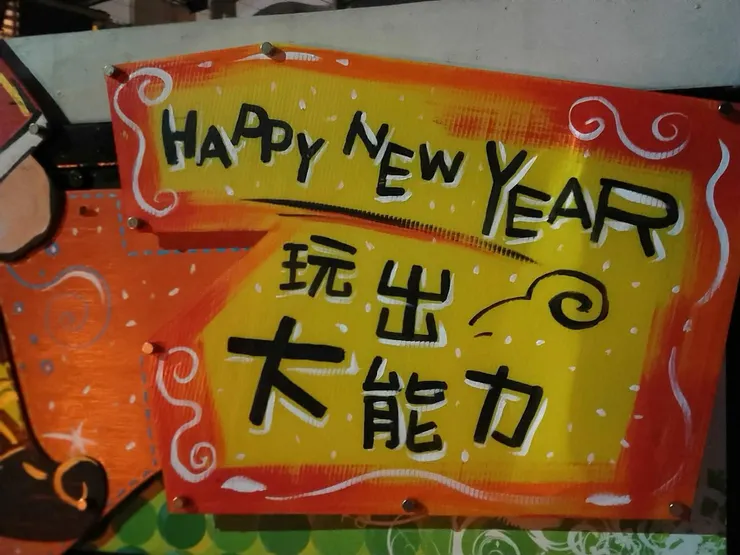 HAPPY NEW YEAR
玩出
大能力